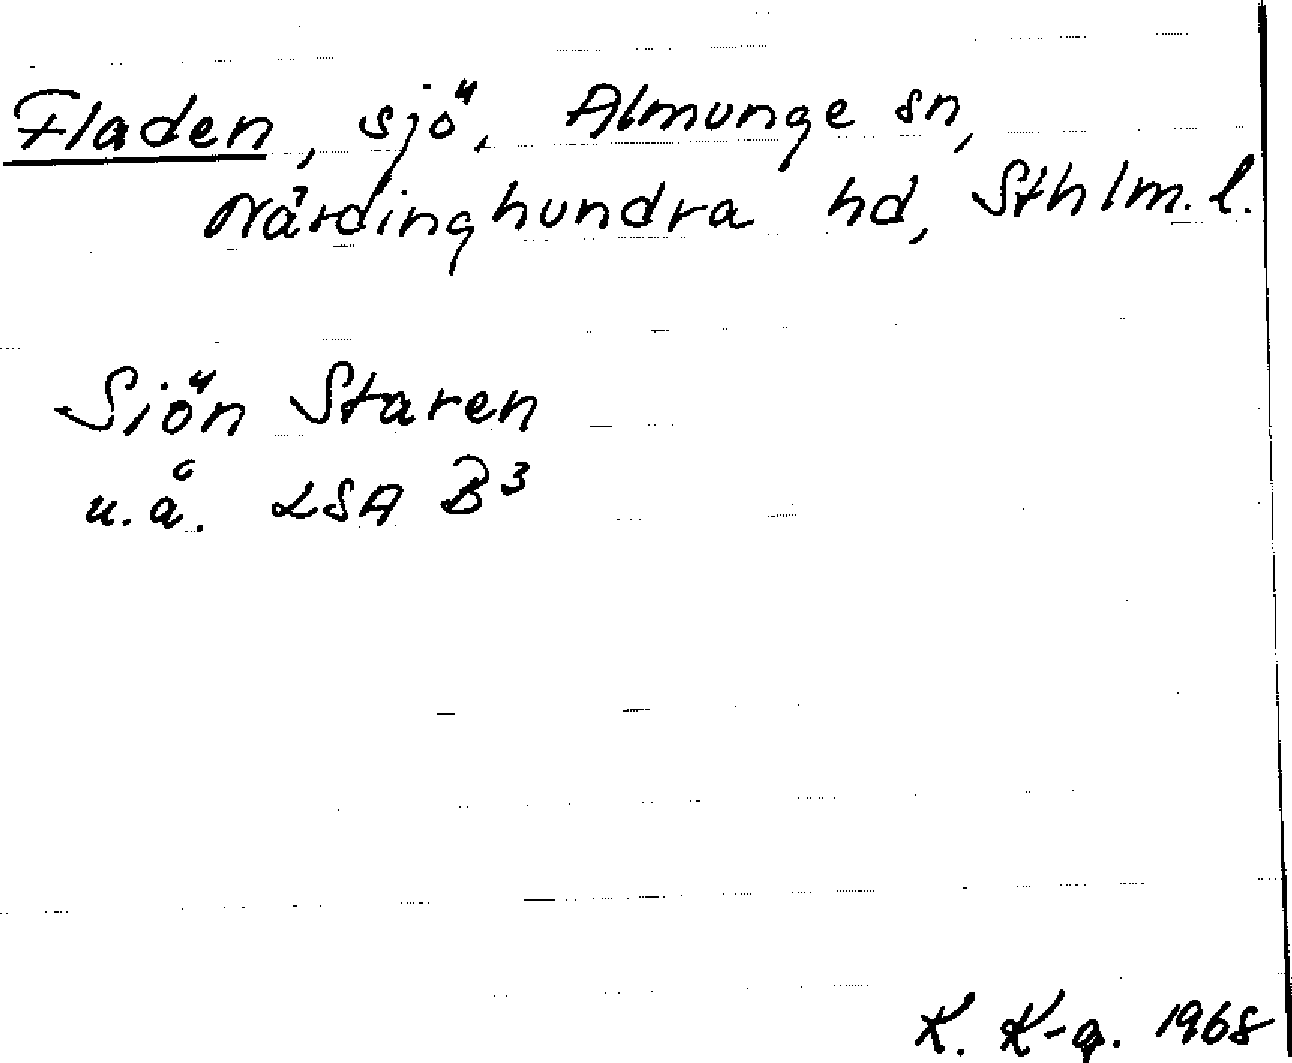 Fladen, sjö, Almunge sn,
Närdinghundra hd, Sthlm. l.
Siön Staren
u.å. LSA B³
K. K-g. 1968